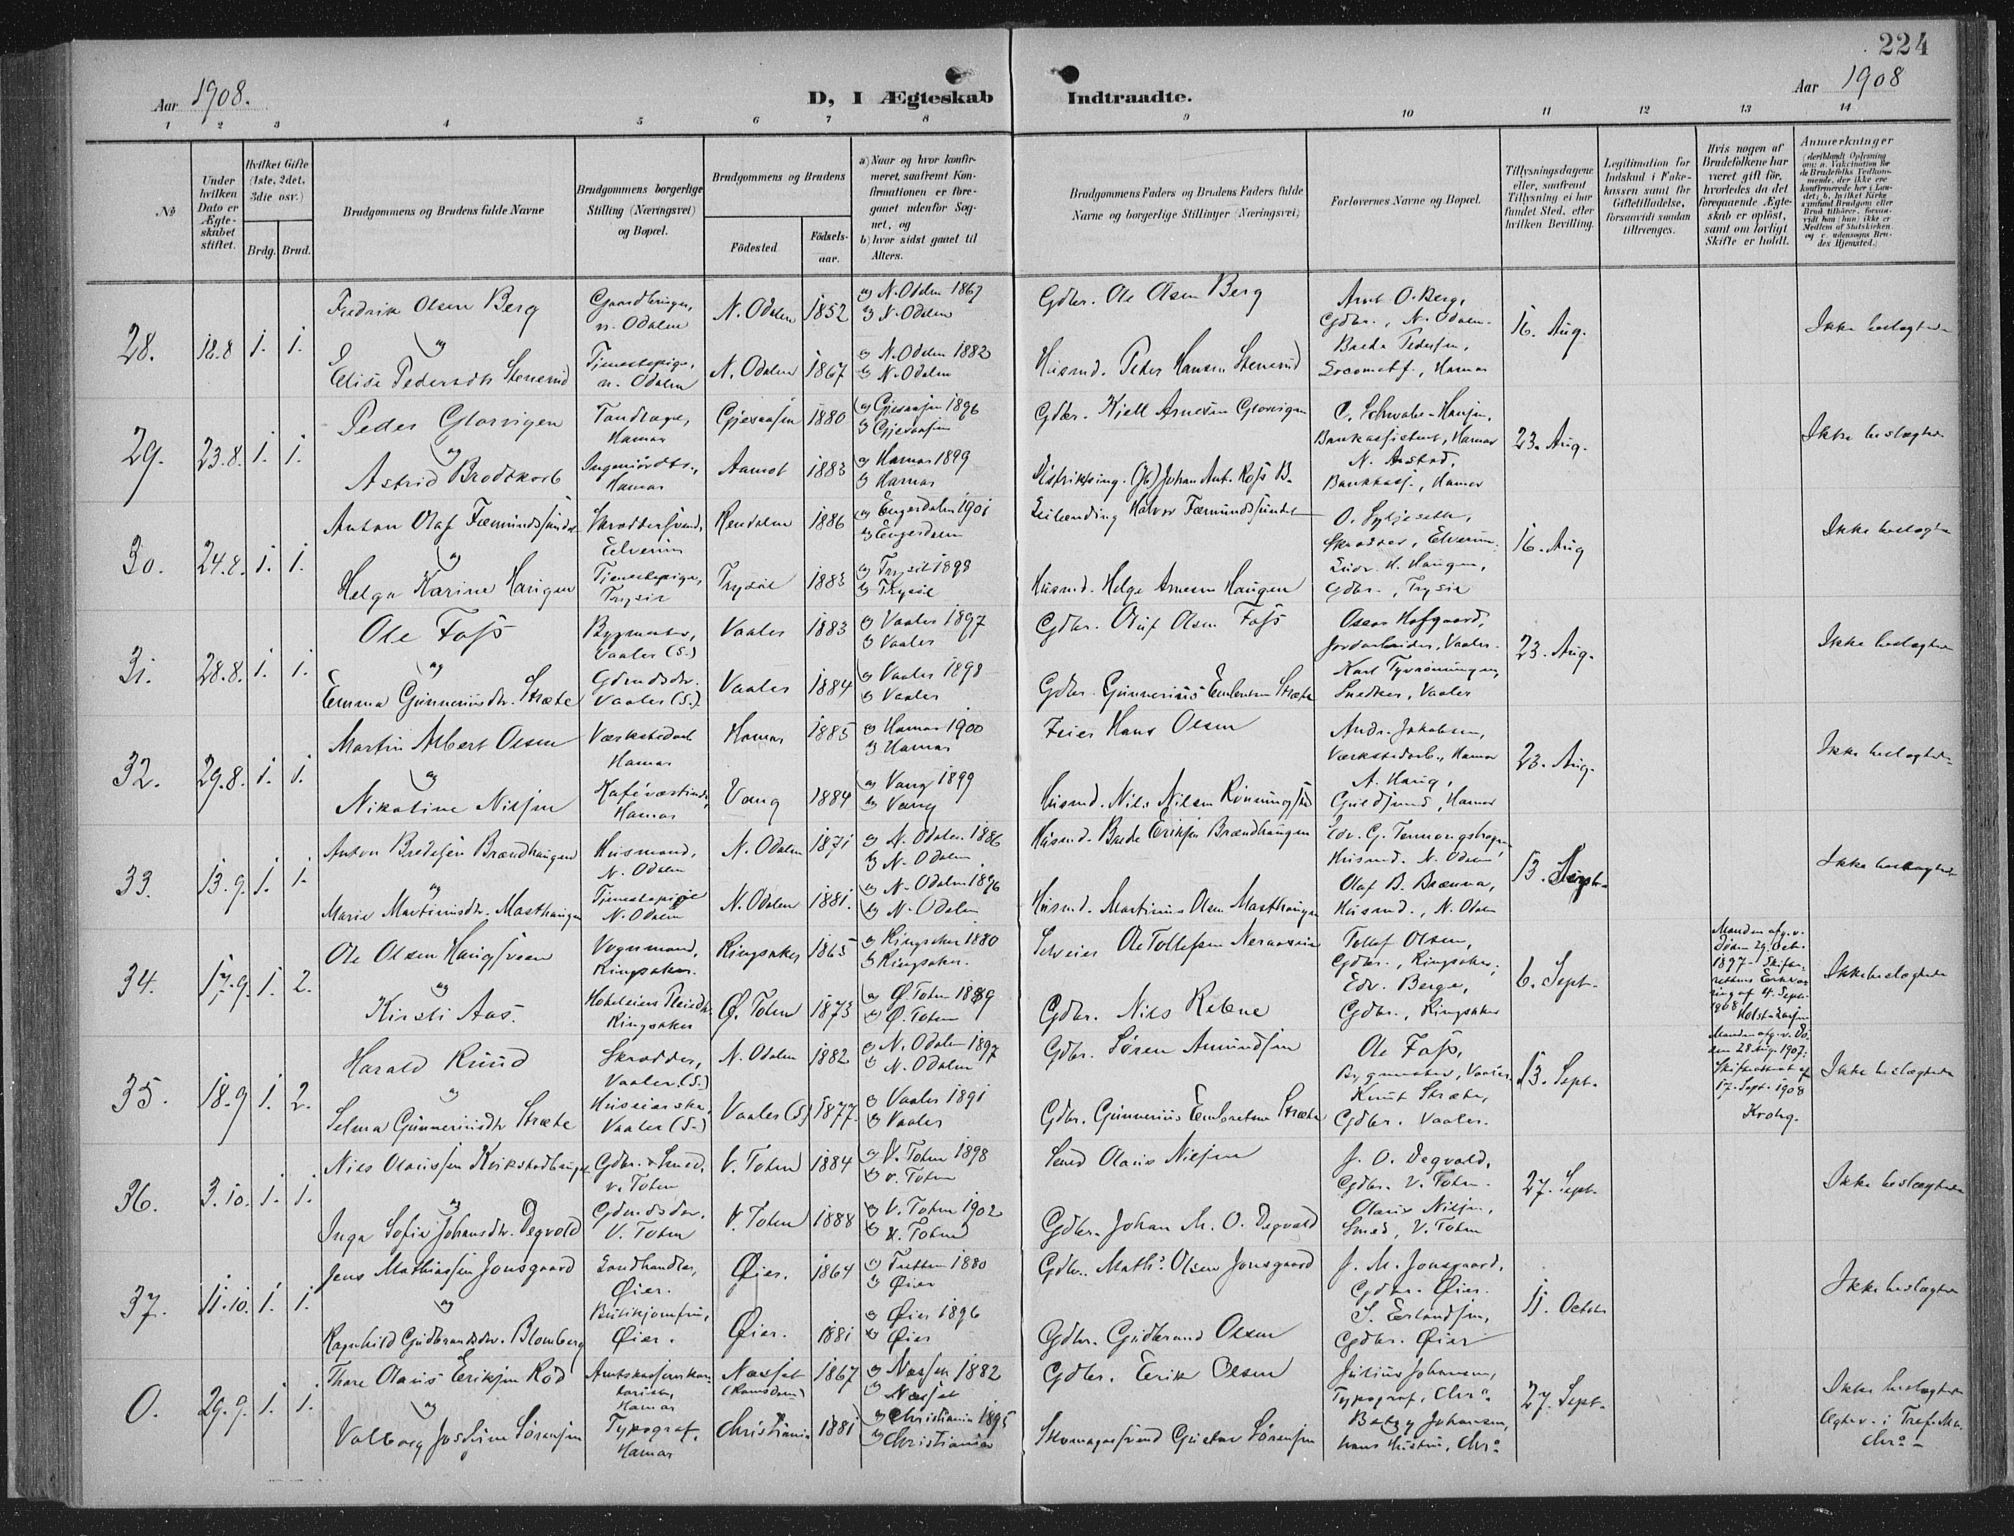 224
Aar 1908.
D, I Ægteskab
Indtraadte.
Aar 1908
1 2 3 4 5 6 7 8 9 10 11 12 13 14
№
Under hvilken Dato er Ægteskabet stiftet.
Hvilket Gifte (1ste, 2det, 3die osv.)
Brdg. Brud.
Brudgommens og Brudens fulde Navne
Brudgommens borgerlige Stilling (Næringsvei) og Bopæl.
Brudgommens og Brudens
Fødested. Fødsels-aar.
a) Naar og hvor konfirmeret, saafremt Konfirmationen er foregaaet udenfor Sognet, og
b) hvor sidst gaaet til Alters.
Brudgommens Faders og Brudens Faders fulde Navne og borgerlige Stillinger (Næringsvei)
Forlovernes Navne og Bopæl.
Tillysningsdagene eller, saafremt Tillysning ei har fundet Sted, efter hvilken Bevilling.
Legitimation for Indskud i Enkekassen samt for Giftetilladelse, forsaavidt saadan tiltrænges.
Hvis nogen af Brudefolkene har været gift før, hvorledes da det foregaaende Ægteskab er opløst, samt om lovligt Skifte er holdt.
Anmærkninger
28. 18.8 1. 1.
Fredrik Olsen Berg
Gaardbruger, N. Odalen
N. Odalen 1852
a) N. Odalen 1867
b) N. Odalen
Gdbr. Ole Olsen Berg
Arnt O. Berg, Gdbr., N. Odalen.
16. Aug.
Ikke beslægtede
og
Elise Pedersdtr Stenerud
Tjenestepige, N. Odalen
N. Odalen 1867
a) N. Odalen 1882
b) N. Odalen
Husmd. Peder Hansen Stenerud
Brede Pedersen, Locomotf., Hamar
29. 23.8. 1. 1.
Peder Glorvigen
Tandlæge, Hamar
Gjesaasen 1880
a) Gjesaasen 1896
b) Gjesaasen
Gdbr. Kjell Arnesen Glorvigen
C. Schwabe-Hansen, Bankassistent, Hamar
23. Aug.
Ikke beslægtede
og
Astrid Brodtkorb
Ingeniørdtr., Hamar
Aamot 1883
a) Hamar 1899
b) Hamar
Distriktsing. Johan Ant. Ross B.
N. Aastad, Bankkass., Hamar
30. 24.8. 1. 1.
Anton Olaf Fæmundssundet
Skræddersvend, Elverum
Rendalen 1886
a) Engerdalen 1901
b) Engerdalen
Leilænding Halvor Fæmundssundet
O. Syljeseth, Skrædder, Elverum.
16. Aug
Ikke beslægtede
og
Helga Karine Haugen
Tjenestepige, Trysil
Trysil 1883
a) Trysil 1898
b) Trysil
Husmd. Helge Arnesen Haugen
H. Haugen, Gdbr., Trysil
31. 28.8. 1. 1.
Ole Foss
Bygmester, Vaaler (S.)
Vaaler 1883
a) Vaaler 1897
b) Vaaler
Gdbr. Oluf Olsen Foss
Oscar Hofgaard, Jordarbeider, Vaaler.
23. Aug.
Ikke beslægtede
og
Emma Gunneriusdtr. Stræte
Gdmdsdtr. Vaaler (S.)
Vaaler 1884
a) Vaaler 1898
b) Vaaler
Gdbr. Gunnerius Embretsen Stræte
Karl, Snedker, Vaaler
32. 29.8. 1. 1.
Martin Albert Olsen
Værkstedarb. Hamar
Hamar 1885
a) Hamar 1900
b) Hamar
Feier Hans Olsen
Andr. Jakobsen, Værkstedarb., Hamar
23. Aug.
Ikke beslægtede
og
Nikoline Nilsen
Hamar
Vang 1884
a) Vang 1899
b) Vang
Husmd. Nils Nilsen
A. Haug, Guldsmed, Hamar
33. 13.9. 1. 1.
Anton Bredesen Brændhaugen
Husmand, N. Odalen
N. Odalen 1871
a) N. Odalen 1886
b) N. Odalen
Husmd. Brede Eriksen Brændhaugen
Edv. G., Husmd. N. Odalen
13. Sept.
Ikke beslægtede
og
Marie Martinusdtr. Masthaugen
Tjenestepige N. Odalen
N. Odalen 1881.
a) N. Odalen 1896
b) N. Odalen
Husmd. Martinus Olsen Masthaugen
Olaf B. Brænna, Husmd., N. Odalen
34. 17.9. 1. 2.
Ole Olsen Haugsveen
Vognmand, Ringsaker.
Ringsaker 1865
a) Ringsaker 1880
b) Ringsaker.
Selveier Ole Tollefsen
Tollef Olsen, Gdbr., Ringsaker.
6. Sept.
Manden afg. v. Døden 29. Octr. 1897 - Skifterettens Erklæring af 4. Septr. 1908
Ikke beslægtede
og
Kirsti Aas.
Ringsaker
Ø. Toten 1873
a) Ø. Toten 1889
b) Ø. Toten
Gdbr. Nils Rebne
Edv. Berge, Gdbr., Ringsaker
35. 18.9 1. 2.
Harald Ruud
Skrædder, Vaaler (S.)
N. Odalen 1882
a) N. Odalen 1897
b) N. Odalen
Gdbr. Søren Amundsen
Ole Foss, Bygmester, Vaaler
13. Sept.
Manden afg. v. Døden 28 Aug. 1907. Skifteattest af 17. Sept. 1908 Krohg.
Ikke beslægtede
og
Selma Gunneriusdtr Stræte
Huseierske, Vaaler (S.)
Vaaler (S) 1877.
a) Vaaler 1891
b) Vaaler
Gdbr. Gunnerius Embretsen Stræte
Knut Stræte, Gdbr. Vaaler.
36. 3.10. 1. 1.
Nils Olaussen Kvikstadhaugen
Gdbr. & Smed, V. Toten
V. Toten 1884
a) V. Toten 1898
b) V. Toten
Smed Olaus Nilsen
J. O. Degvold, Gdbr. V. Toten.
27. Sept.
Ikke beslægtede
og
Inga Sofie Johansdtr. Degvold
Gdmdsdtr., V. Toten
V. Toten 1888
a) V. Toten 1902
b) V. Toten
Gdbr. Johan M. O. Degvold
Olaus Nilsen, Smed, V. Toten
37. 11.10. 1. 1.
Jens Mathiassen Jonsgaard
Landhandler, Øier.
Øier. 1864
a) Tretten 1880
b) Øier
Gdbr. Maths. Olsen Jonsgaard
J. M. Jonsgaard, Gdbr. Øier.
11. Octbr.
Ikke beslægtede
og
Ragnhild Gudbrandsdtr. Blomberg
Butikjomfru, Øier.
Øier. 1881
a) Øier 1896
b) Øier
Gdbr. Gudbrand Olsen
S. Erlandsen, Gdbr. Øier
0. 29.9. 1. 1.
Thore Olaus Eriksen Rød
Hamar
Næsset (Romsdalen) 1867
a) Næsset 1882
b) Næsset
Gdbr. Erik Olsen
Julius Johansen, Typograf, Chra.
27. Sept.
Ikke beslægtede
og
Valborg Josefine Sørensen
Typograf, Hamar
Christiania 1881
a) Christiania 1895
b) Christiania
Skomagersvend Gustav Sørensen
Betzy Johansen, hans Hustru, Chra.
Ægtev. i Tref. Me. Chra.